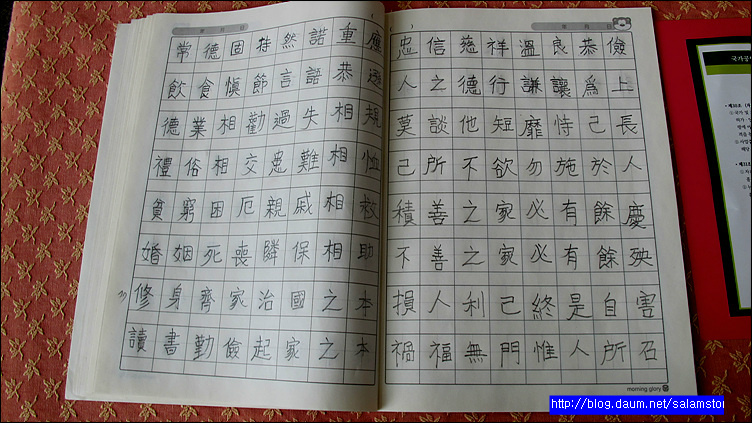 年 月 日
常德固持然諾重應
飮食愼節言語恭遜
德業相勸過失相規
禮俗相交患難相恤
貧窮困厄親戚相救
婚姻死喪隣保相助
修身齊家治國之本
讀書勤儉起家之本
年 月 日
忠信慈祥溫良恭儉
人之德行謙讓爲上
莫談他短靡恃己長
己所不欲勿施於人
積善之家必有餘慶
不善之家必有餘殃
損人利己終是自害
禍福無門惟人所召
morning glory
http://blog.daum.net/salamstor